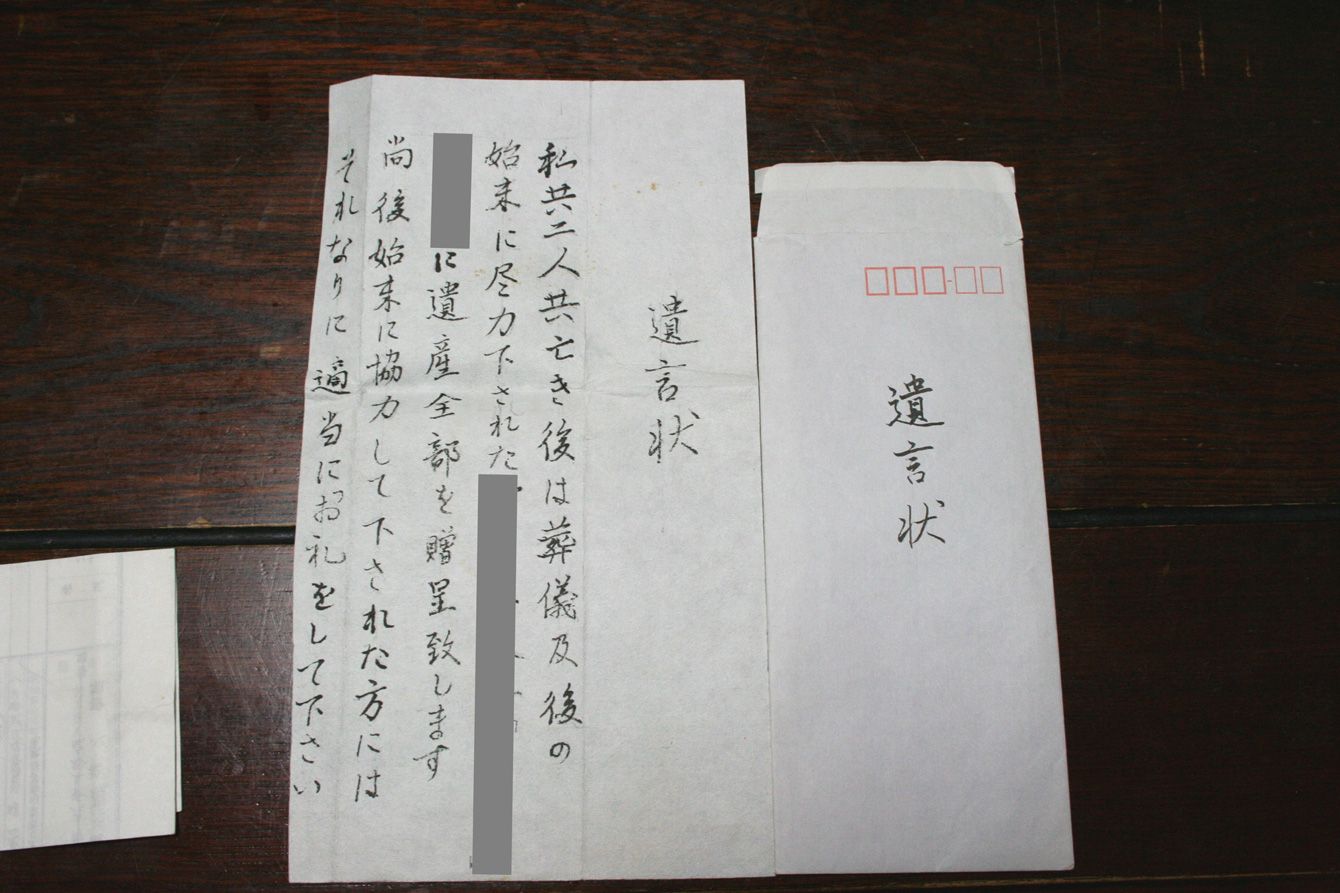 遺言状
私共二人共亡き後は葬儀及後の
始末に尽力下された
に遺産全部を贈呈致します
尚後始末に協力して下された方には
それなりに適当にお礼をして下さい
遺言状